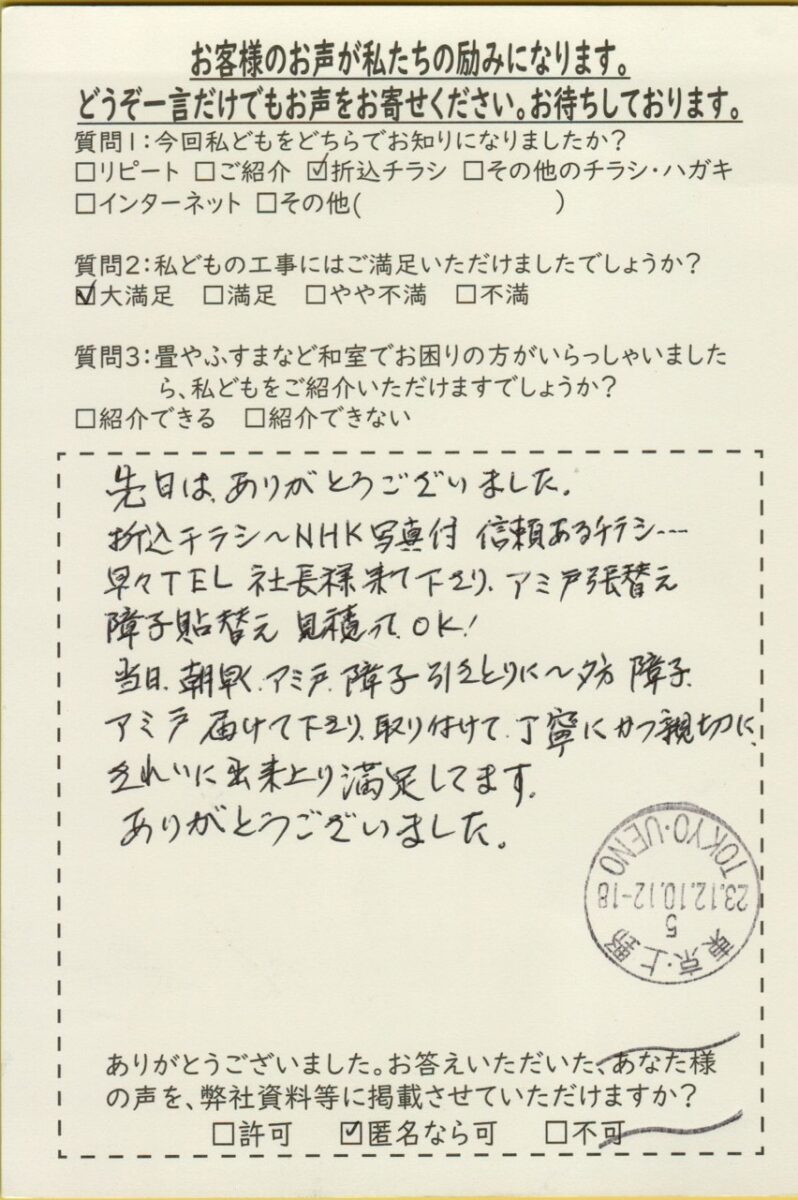 お客様のお声が私たちの励みになります。
どうぞ一言だけでもお声をお寄せください。お待ちしております。
質問1:今回私どもをどちらでお知りになりましたか?
□リピート □ご紹介 ☑折込チラシ □その他のチラシ・ハガキ
□インターネット □その他( )
質問2:私どもの工事にはご満足いただけましたでしょうか?
☑大満足 □満足 □やや不満 □不満
質問3:畳やふすまなど和室でお困りの方がいらっしゃいました
ら、私どもをご紹介いただけますでしょうか?
□紹介できる □紹介できない
先日は、ありがとうございました。
折込チラシ～NHK写真付 信頼あるチラシ---
早々TEL 社長様来て下さり、アミ戸張替え
障子貼替え 見積って、OK!
当日、朝早く、アミ戸、障子引きとりに～夕方 障子、
アミ戸 届けて下さり、取り付けて、丁寧にかつ親切に、
きれいに出来上り満足してます。
ありがとうございました。
TOKYO・UENO
23.12.10.12-18
5
東京・上野
ありがとうございました。お答えいただいた、あなた様
の声を、弊社資料等に掲載させていただけますか?
□許可 ☑匿名なら可 □不可